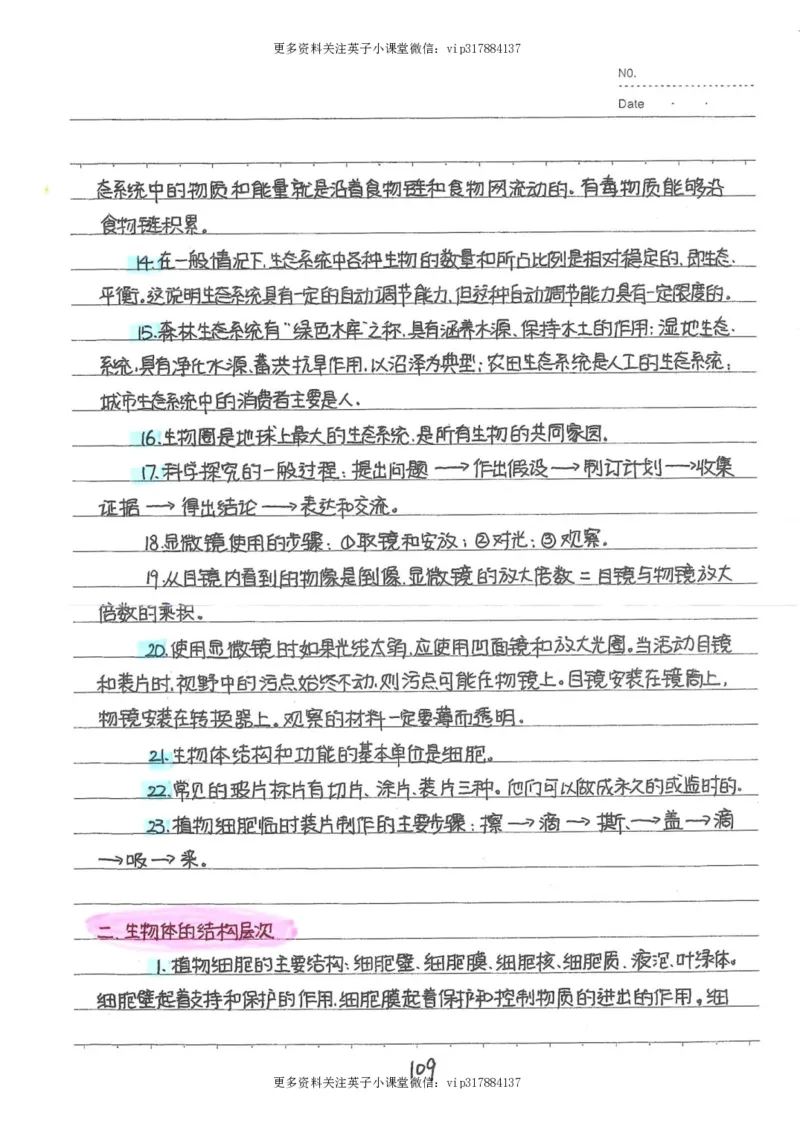 更多资料关注英子小课堂微信：vip317884137
NO.
Date
态系统中的物质和能量就是沿着食物链和食物网流动的。有毒物质能够沿
食物链积累。
14.在一般情况下,生态系统中各种生物的数量和所占比例是相对稳定的,即生态.
平衡。这说明生态系统具有一定的自动调节能力,但这种自动调节能力具有一定限度的。
15.森林生态系统有“绿色水库”之称,具有涵养水源、保持水土的作用；湿地生态.
系统,具有净化水源、蓄洪抗旱作用,以沼泽为典型；农田生态系统是人工的生态系统；
城市生态系统中的消费者主要是人.
16.生物圈是地球上最大的生态系统,是所有生物的共同家园。
17.科学探究的一般过程：提出问题→作出假设→制订计划→收集
证据→得出结论→表达和交流。
18.显微镜使用的步骤：①取镜和安放；②对光；③观察。
19.从目镜内看到的物像是倒像,显微镜的放大倍数=目镜与物镜放大
倍数的乘积。
20.使用显微镜时如果光线太弱,应使用凹面镜和放大光圈。当活动目镜
和装片时,视野中的污点始终不动,则污点可能在物镜上。目镜安装在镜筒上,
物镜安装在转换器上。观察的材料一定要薄而透明.
21.生物体结构和功能的基本单位是细胞。
22.常见的玻片标片有切片、涂片、装片三种。他们可以做成永久的或临时的.
23.植物细胞临时装片制作的主要步骤：擦→滴→撕、→盖→滴
→吸→来。
二.生物体的结构层次
1.植物细胞的主要结构：细胞壁、细胞膜、细胞核、细胞质、液泡、叶绿体。
细胞壁起着支持和保护的作用,细胞膜起着保护和控制物质的进出的作用,细
109
更多资料关注英子小课堂微信：vip317884137